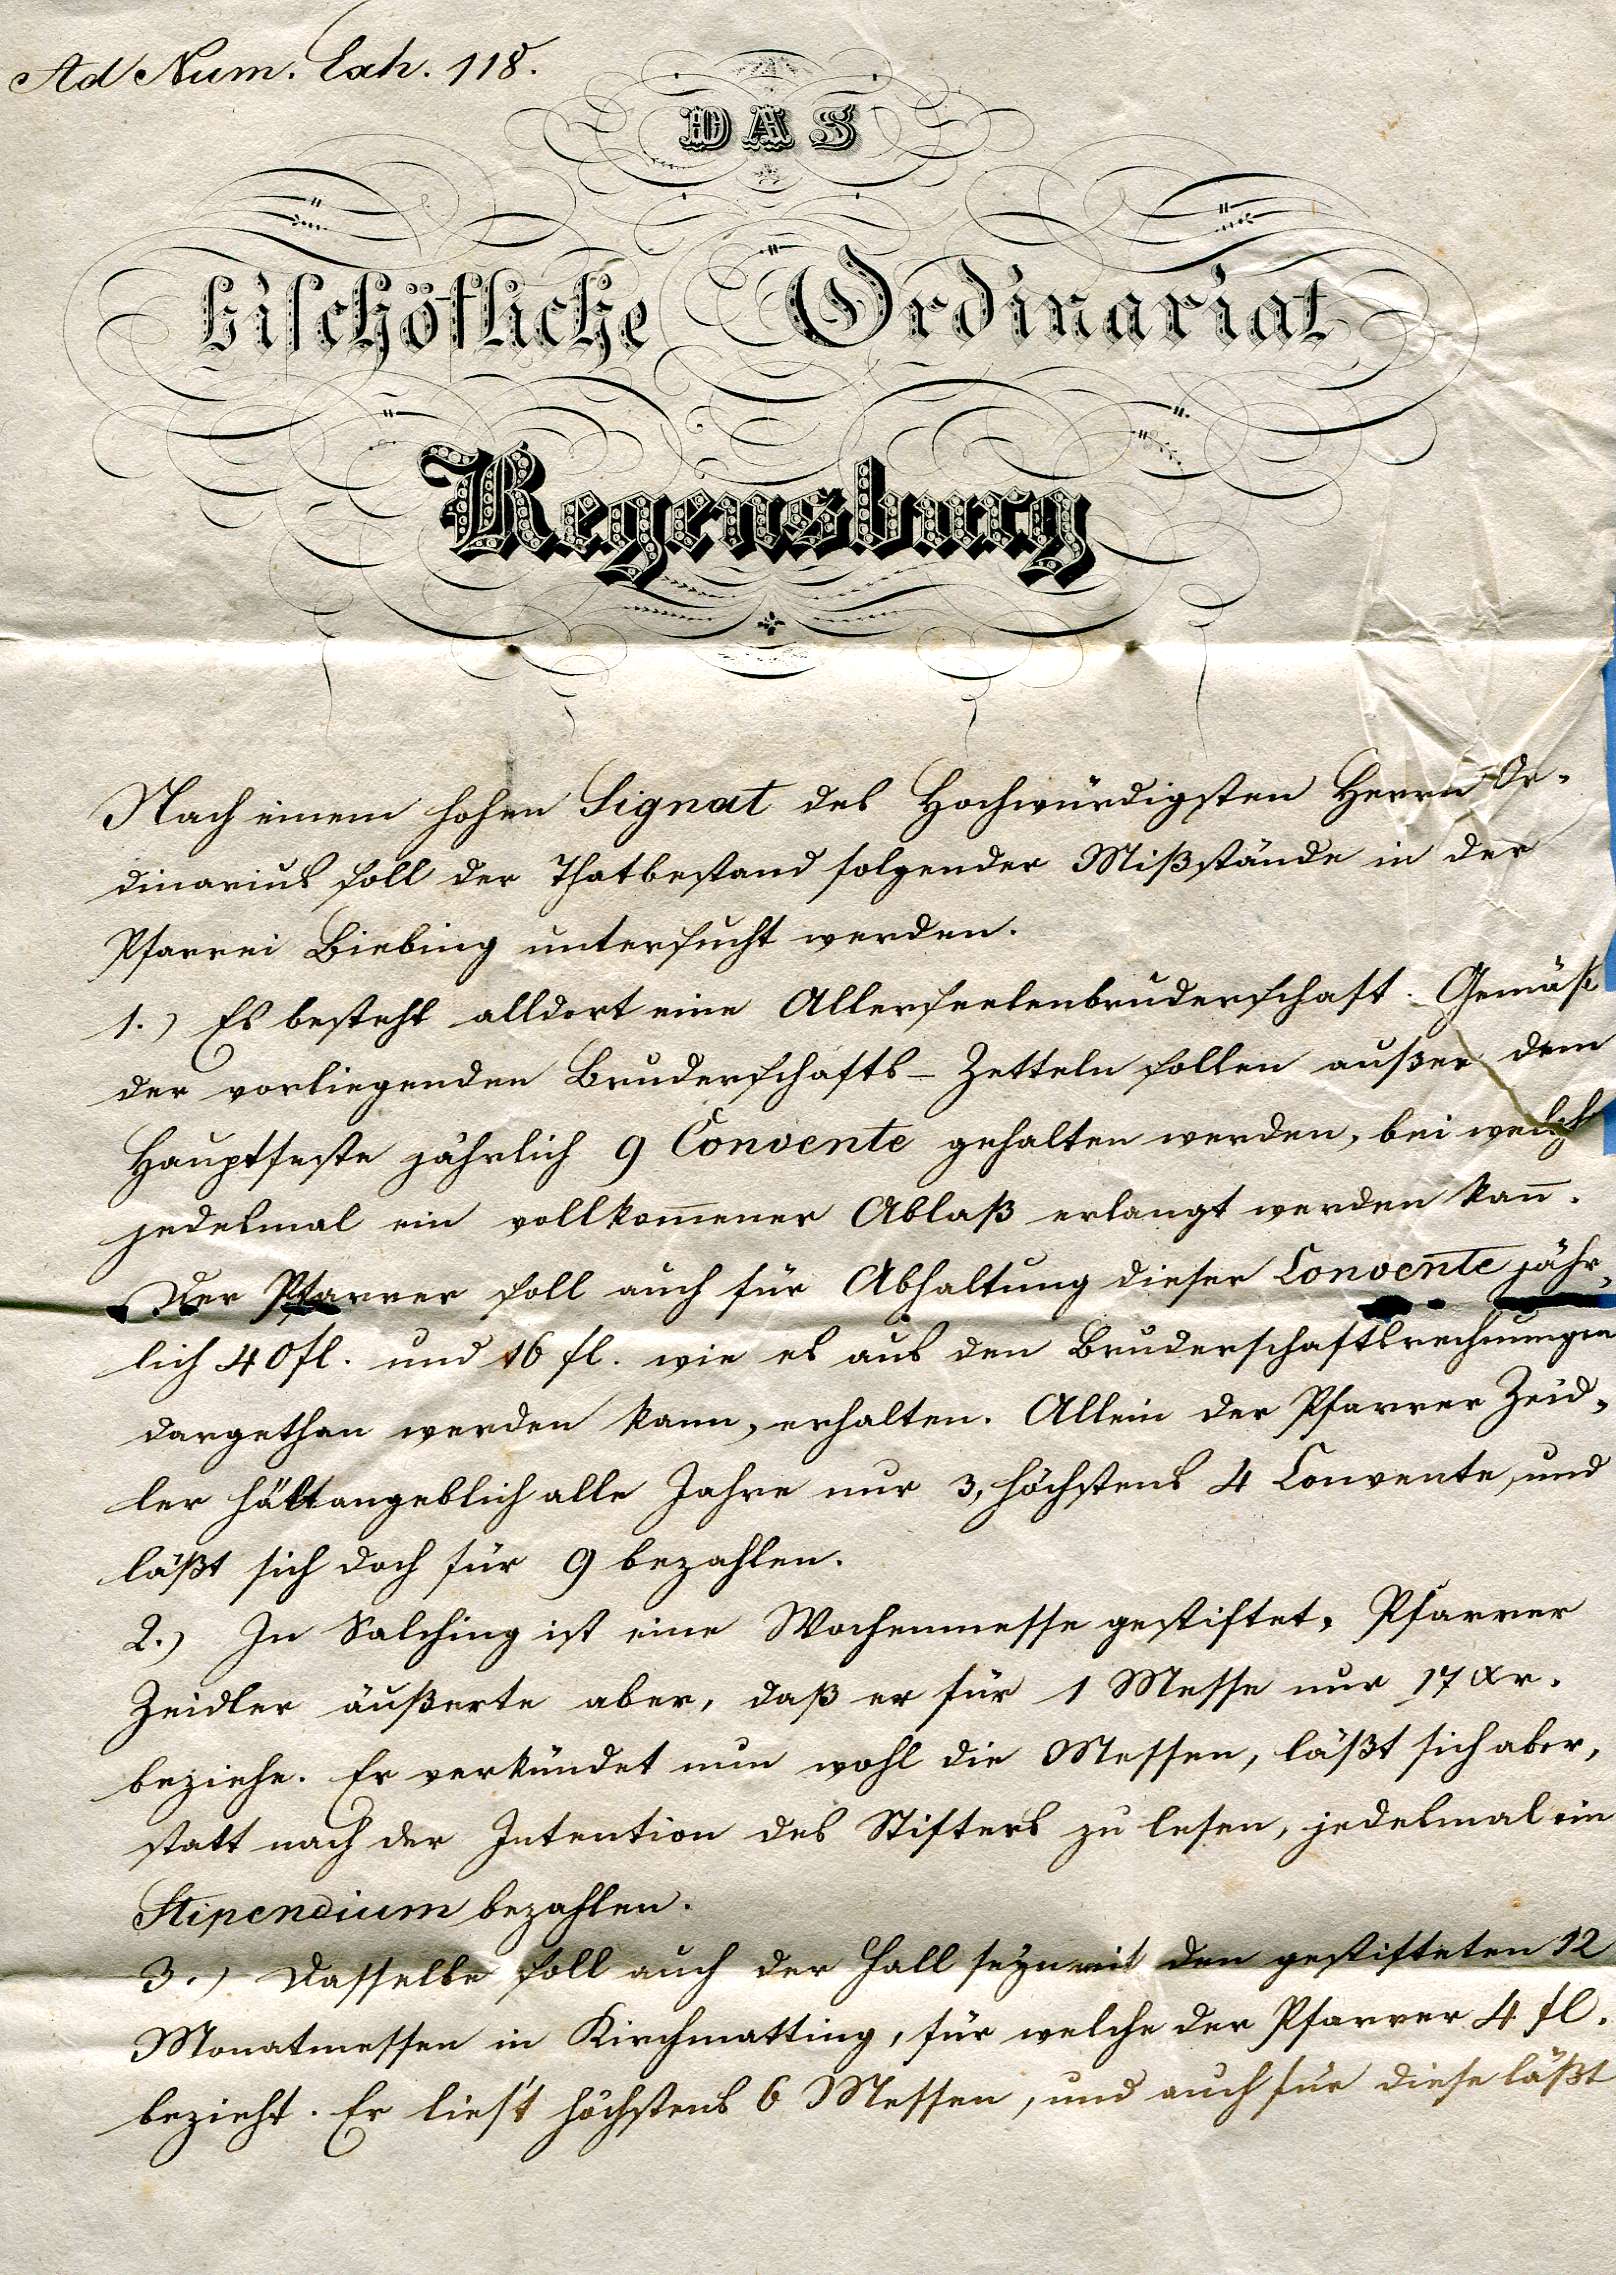 Ad Num. Exh. 118.
DAS
bischöfliche Ordinariat
Regensburg
Nach einem hohen Signat des Hochwürdigsten Herrn Or-
dinarius soll der Thatbestand folgender Mißstände in der
Pfarrei Biebing untersucht werden.
1.) Es besteht alldort eine Allerseelenbruderschaft. Gemäß
der vorliegenden Bruderschafts-Zetteln sollen außer dem
Hauptfeste jährlich 9 Convente gehalten werden, bei welch
jedesmal ein vollkom̅ener Ablaß erlangt werden kan̅.
Der Pfarrer soll auch für Abhaltung dieser Convente jähr-
lich 40 fl. und 16 fl. wie es aus den Bruderschaftsrechnungen
dargethan werden kann, erhalten. Allein der Pfarrer Zeid-
ler hält angeblich alle Jahre nur 3, höchstens 4 Convente, und
läßt sich doch für 9 bezahlen.
2.) In Salching ist eine Wochenmesse gestiftet, Pfarrer
Zeidler äußerte aber, daß er für 1 Messe nur 17 xr.
beziehe. Er verkündet nun wohl die Messen, läßt sich aber,
statt nach der Intention des Stifters zu lesen, jedesmal ein
Stipendium bezahlen.
3.) Dasselbe soll auch der Fall seyn mit den gestifteten 12
Monatmessen in Kirchmatting, für welche der Pfarrer 4 fl.
bezieht. Er lies't höchstens 6 Messen, und auch für diese läßt